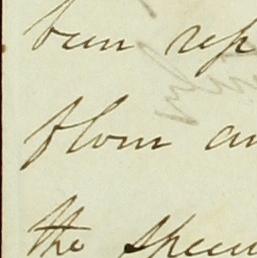 been rep
from an
the specim